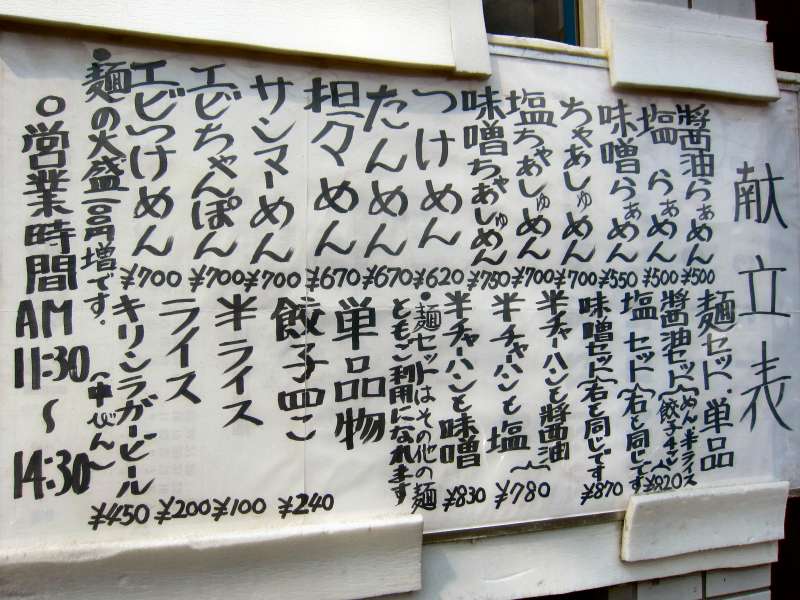 献立表
醤油らぁめん ¥500
塩らぁめん ¥500
味噌らぁめん ¥550
ちゃあしゅめん ¥700
塩ちゃあしゅめん ¥700
味噌ちゃあしゅめん ¥750
つけめん ¥620
たんめん ¥670
担々めん ¥670
サンマーめん ¥700
エビちゃんぽん ¥700
エビつけめん ¥700
・麺の大盛一〇〇円増です.
〇営業時間 AM 11:30 〜 14:30
麺セット.単品
醤油セット(めん・半ライス 餃子
塩セット(右と同じです ¥820
味噌セット(右と同じです ¥870
半チャーハンと醤油
半チャーハンと塩 ¥780
半チャーハンと味噌 ¥830
・麺セットはその他の麺
ともご利用になれます
単品物
餃子四こ ¥240
半ライス ¥100
ライス ¥200
キリンラガービール ¥450
(中びん)